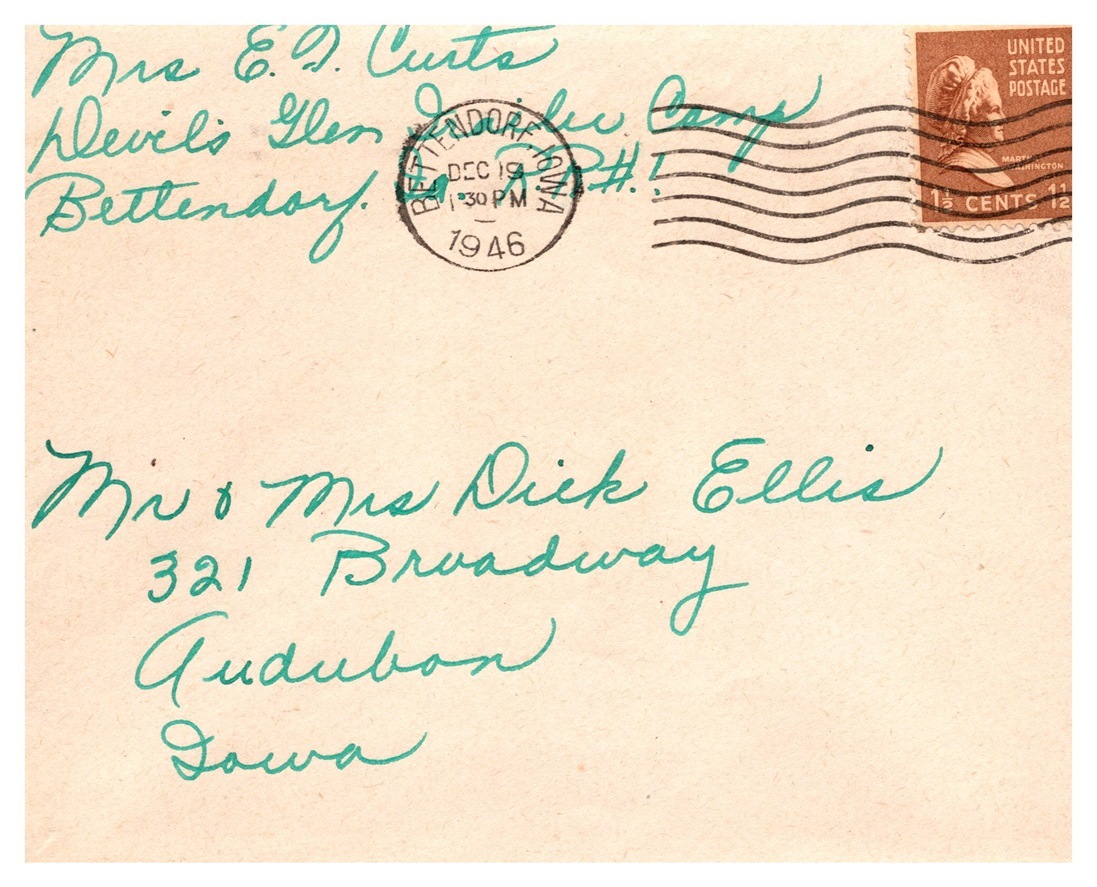 Mrs E. T. Curts
Devil's Glen Trailer Camp
Bettendorf. Ia RR#1
BETTENDORF, IOWA
DEC 19
1:30 PM
1946
UNITED
STATES
POSTAGE
MARTHA
WASHINGTON
1½ CENTS 1½
Mr & Mrs Dick Ellis
321 Broadway
Audubon
Iowa